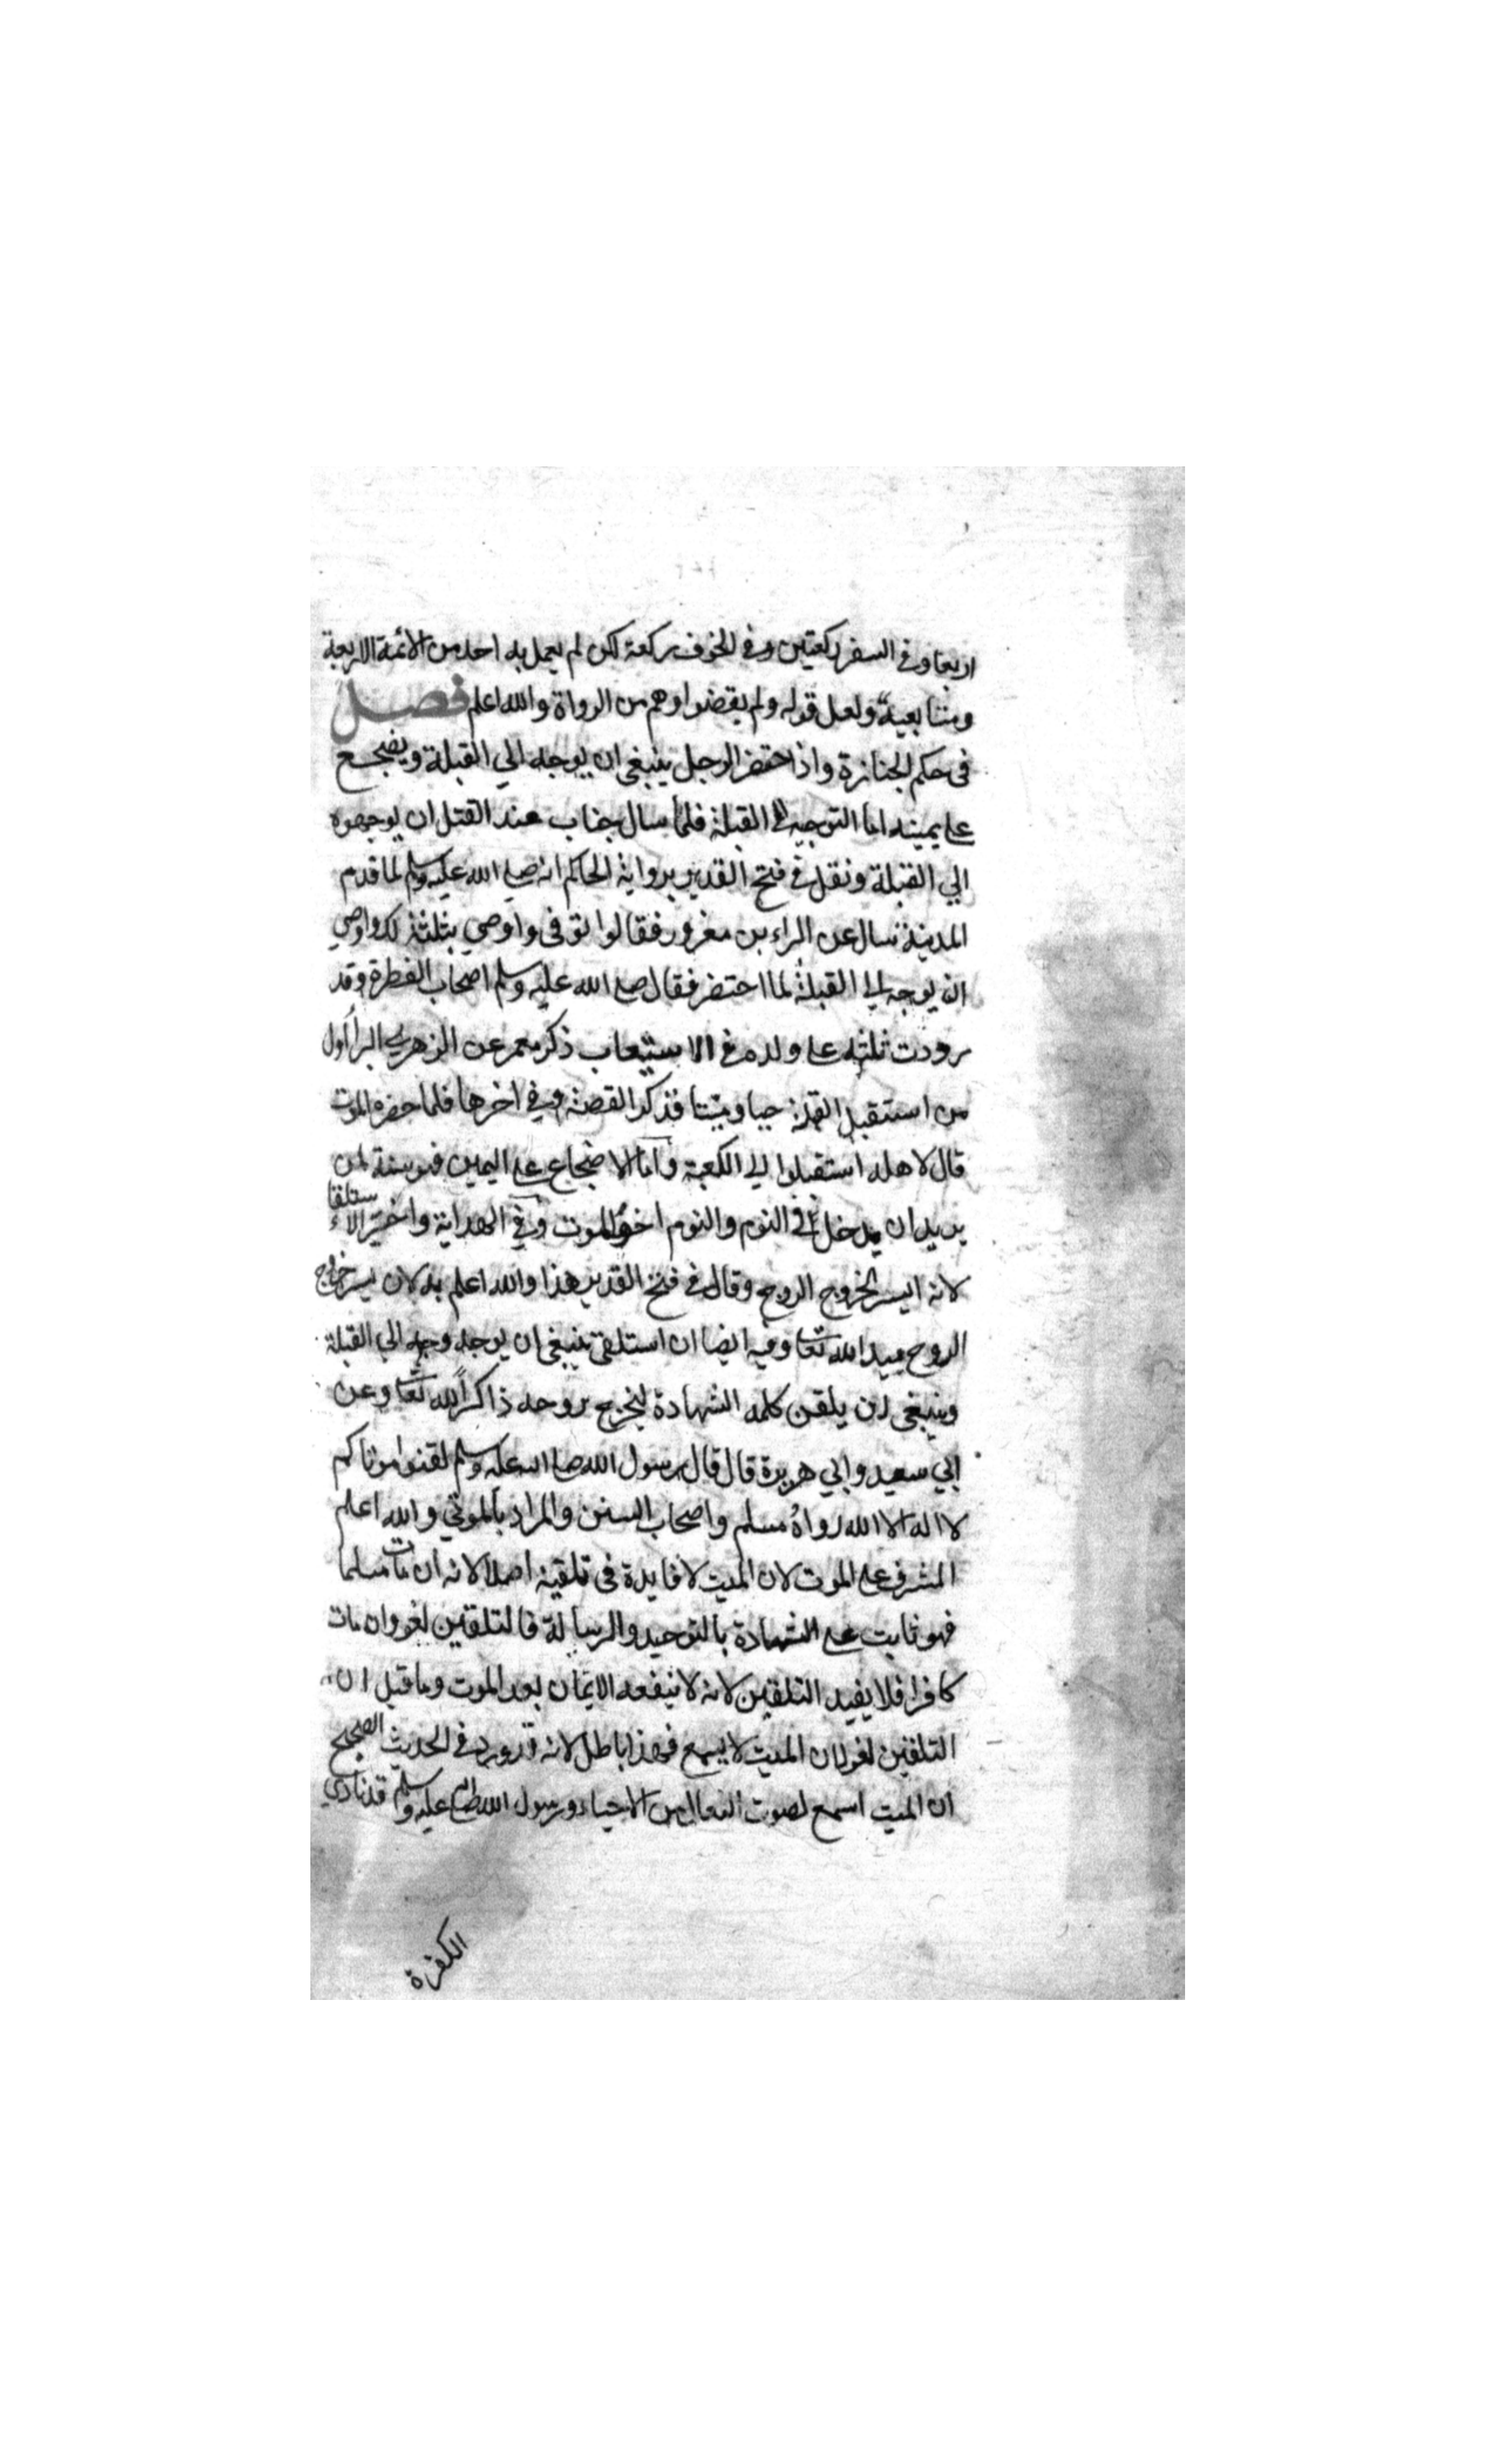 اربعا وفي السفر ركعتين وفي الخوف ركعة لكن لم يعمل به احد من الائمة الاربعة
ومتابعيه ولعل قوله ولم يقضوا وهم من الرواة والله اعلم فصل
في حكم الجنازة واذا حتضر الرجل ينبغي ان يوجه الي القبلة ويضجع
علي يمينه اما التوجيه الى القبلة فلما سال جناب عند القتل ان يوجهوه
الي القبلة ونقل في فتح القدير برواية الحاكم انه صلي الله عليه وسلم لما قدم
المدينة سال عن البراء بن مغرور فقالوا توفى واوصي بثلثه لك واوصي
ان يوجه الي القبلة لما احتضر فقال صلي الله عليه وسلم اصحاب الفطرة وقد
رددت ثلثه علي ولده في الاستيعاب ذكر معمر عن الزهري البرا اول
من استقبل القبلة حيا وميتا فذكر القصة وفي اخرها فلما حضره الموت
قال لاهله استقبلوا لي الكعبة واما الاضجاع علي اليمين فهو سنة لمن
يريد ان يدخل في النوم والنوم اخو الموت وفي الهداية واختير الاستلقا
لانه ايسر لخروج الروح وقال في فتح القدير هذا والله اعلم به لان يسر خروج
الروح بيد الله تعا وفيه ايضا ان استلقى ينبغي ان يوجه وجهه الي القبلة
وينبغي ان يلقن كلمه الشهادة ليخرج روحه ذاكرا لله تعا وعن
ابي سعيد وابي هريرة قال قال رسول الله صلي الله عليه وسلم لقنوا موتاكم
لا اله الا الله رواه مسلم واصحاب السنن والمراد بالموتي والله اعلم
المشرف علي الموت لان الميت لا فايدة في تلقينه اصلا لانه ان مات مسلما
فهو ثابت علي الشهادة بالتوحيد والرسالة فالتلقين لغو وان مات
كافرا فلا يفيد التلقين لانه لا ينفعه الايمان بعد الموت وما قيل ان
التلقين لغو لان الميت لا يسمع فهذا باطل لانه قد ورد في الحديث الصحيح
ان الميت اسمع لصوت النعال من الاحياء ورسول الله صلي الله عليه وسلم قد نادي
الكفرة